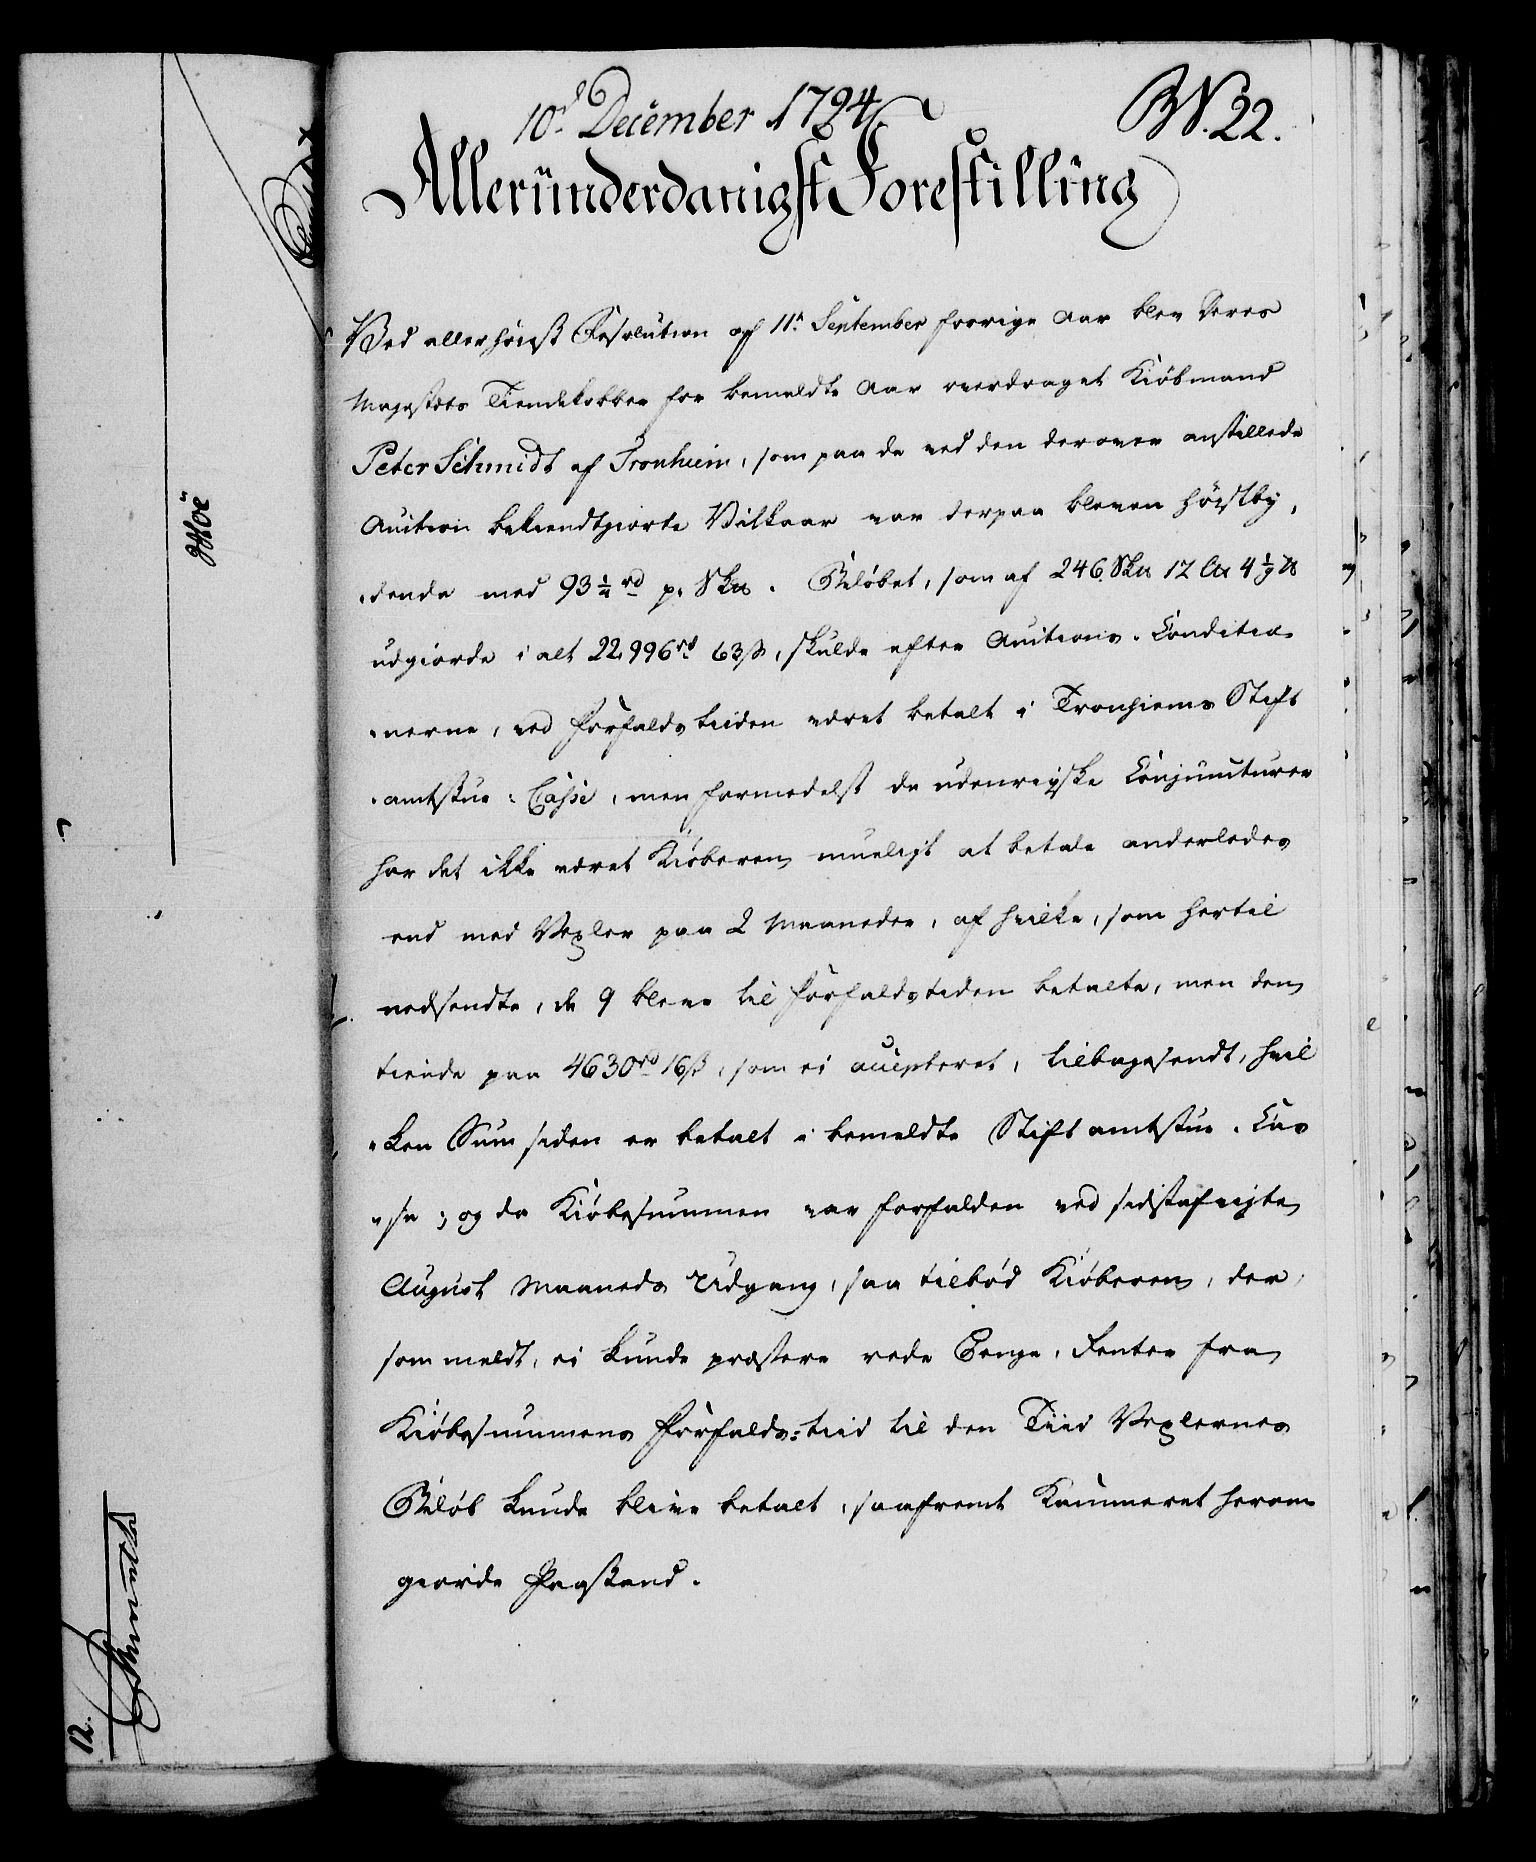 10d December 1794.
BN. 22.
Alleründerdanigst Forestilling
Ved allerhöiest Resolution af 11t September forrige Aar blev Deres
Majestæts Tiendekobber for bemeldte Aar overdraget Kiöbmand
Peter Schmidt af Tronhiem, som paa de ved den derover anstillede
Auction bekiendtgiorte Vilkaar var derpaa bleven höistby,
„dende med 93 1/4 rd p. Sk℔. Belöbet, som af 246 Sk℔ 12 L℔ 4 1/2 ℔
udgiorde i alt 22,996rd 63ß, skulde efter Auctions-Conditio„
„nerne, ved Forfaldstiiden været betalt i Tronhiems Stift
„amtstue-Casse, men formedelst de udenrigske Conjuncturer
har det ikke været Kiöberen mueligt at betale anderledes
end med Vexler paa 2 Maaneder, af hvilke, som hertil
nedsendte, de 9 bleve til Forfaldstiden betalte, men den
tiende paa 4630rd 16ß, som ei accepteret, tilbagesendt, hvil
„ken Sum siden er betalt i bemeldte Stiftamtstue-Cas
„se; og da Kiöbesummen var forfalden ved sidstafvigte
August Maaneds Udgang, saa tilböd Kiöberen, der,
som meldt, ei kunde præstere rede Penge, Renter fra
Kiöbesummens Forfalds-tiid til den Tiid Vexlernes
Belöb kunde blive betalt, saafremt Kammeret herom
giorde Paastand.
12.